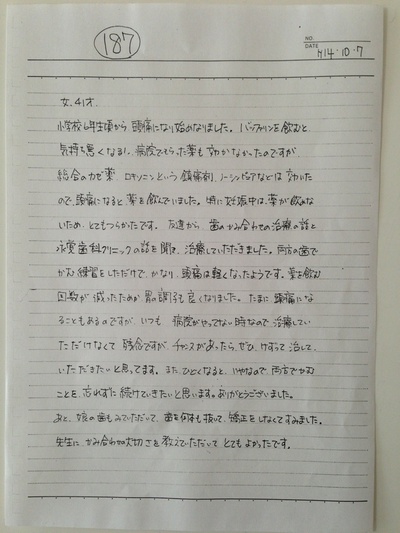 187
NO.
DATE H14・10・7
女.41才.
小学校6年生頃から頭痛になり始めなりました。バッファリンを飲むと
気持ち悪くなるし、病院でもらった薬も効かなかったのですが
総合のカゼ薬 ロキソニンという鎮痛剤、ノーシンピュアなどは効いた
ので、頭痛になると薬を飲んでいました。特に妊娠中は薬が飲めな
いため、とてもつらかったです。友達から、歯のかみ合わせの治療の話と
永愛歯科クリニックの話を聞き、治療していただきました。両方の歯で
かむ練習をしただけで、かなり、頭痛は軽くなったようです。薬を飲む
回数が減ったためか胃の調子も良くなりました。たまに頭痛にな
ることもあるのですが、いつも病院がやってない時なので治療してい
ただけなくて残念ですが、チャンスがあったら、ぜひ、けずって治して、
いただきたいと思ってます。また、ひどくなると、いやなので、両方でかむ
ことを、忘れずに続けていきたいと思います。ありがとうございました。
あと、娘の歯もみていただいて、歯を何本も抜いて、矯正をしなくてすみました。
先生に、かみ合わせの大切さを教えていただいてとてもよかったです。